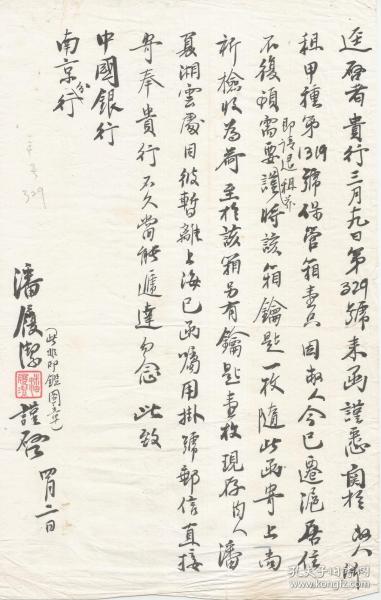 逕啟者貴行三月十九日第329號来函謹悉関於敝人所
租甲種第1319號保管箱壹只因敝人今已遷滬居住
不復須需要謹将該箱鑰匙一枚隨此函寄上尚
即請退租
祈檢收為荷至於該箱另有鑰匙壹枚現存內人潘
夏湘雲處因彼暫離上海已函囑用掛號郵信直接
寄奉貴行不久當能遞達勿念此致
中國銀行
南京分行
329
潘履潔謹啟 四月二日
(此非印鑑圖章)
孔夫子旧书网